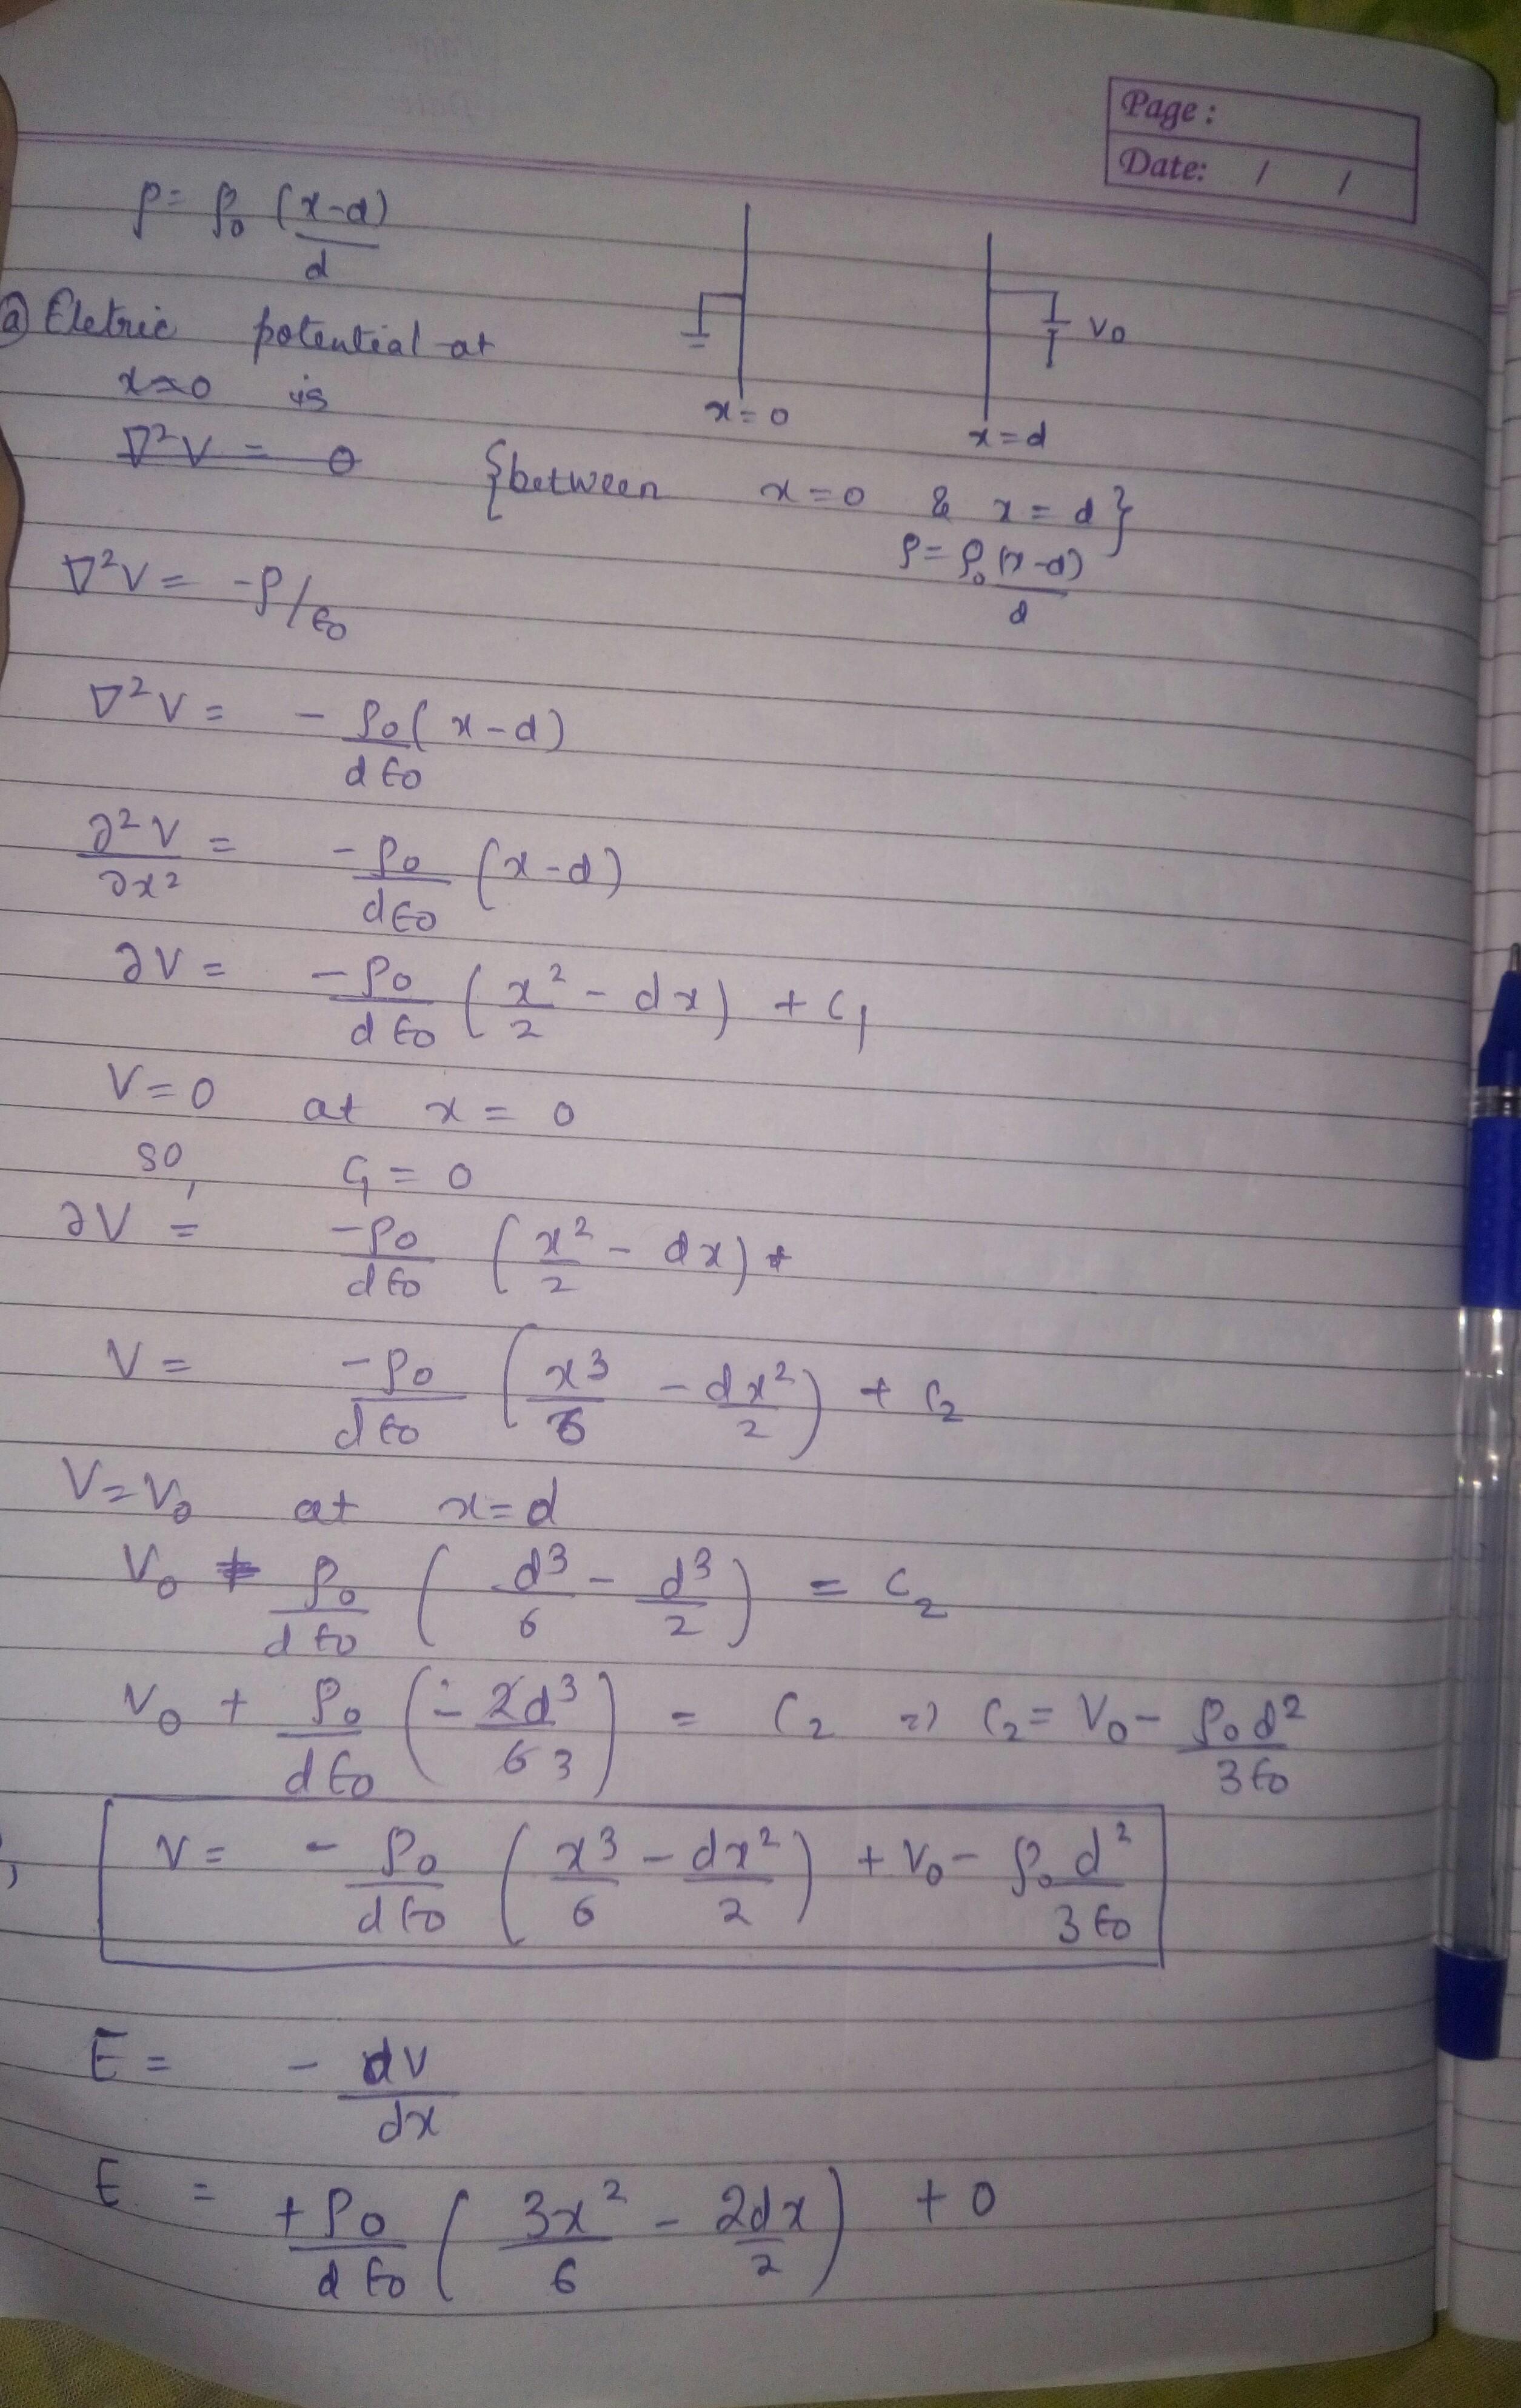 Page :
Date: / /
ρ = ρ₀ (x-d)/d
ⓐ Eletric potential at
x=0 is
V₀
x=0
x=d
∇²V = 0 {between x=0 & x=d}
ρ = ρ₀(x-d)/d
∇²V = -ρ/ε₀
∇²V = - ρ₀(x-d)/dε₀
∂²V/∂x² = -ρ₀/dε₀ (x-d)
∂V = -ρ₀/dε₀ (x²/2 - dx) + C₁
V=0 at x = 0
so, C₁ = 0
∂V = -ρ₀/dε₀ (x²/2 - dx) +
V = -ρ₀/dε₀ (x³/6 - dx²/2) + C₂
V=V₀ at x=d
V₀ + ρ₀/dε₀ (d³/6 - d³/2) = C₂
V₀ + ρ₀/dε₀ (-2d³/6 3) = C₂ => C₂ = V₀ - ρ₀d²/3ε₀
V = - ρ₀/dε₀ (x³/6 - dx²/2) + V₀ - ρ₀d²/3ε₀
E = - dV/dx
E = +ρ₀/dε₀ (3x²/6 - 2dx/2) + 0